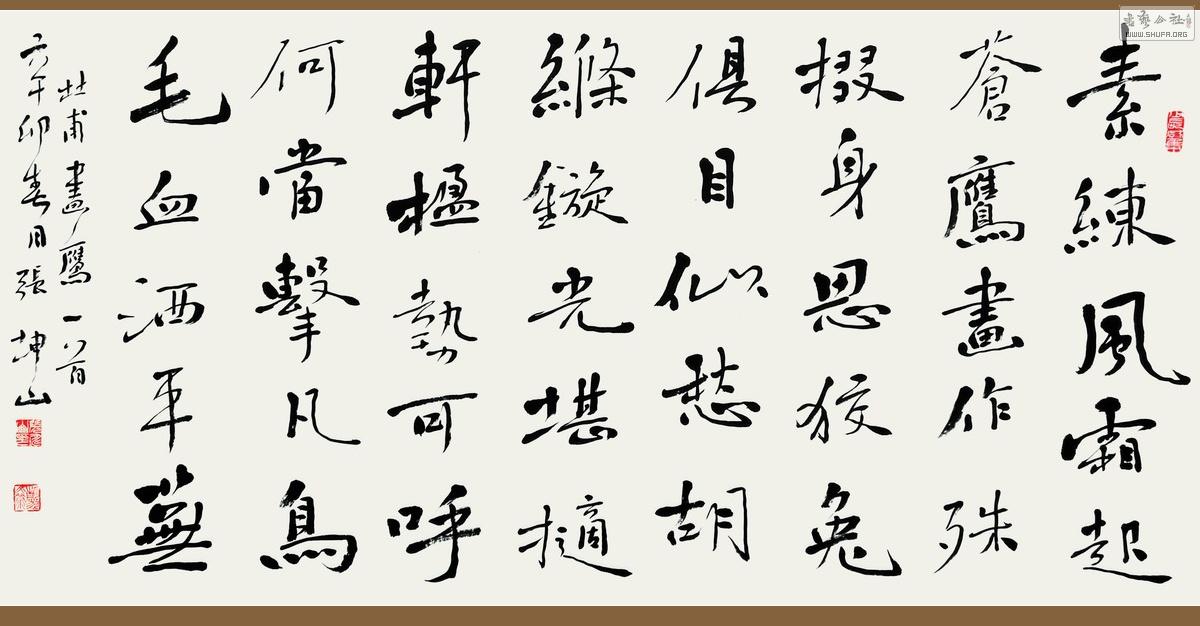 素練風霜起
蒼鷹畫作殊
掇身思狡兔
俱目似愁胡
縧鏇光堪擿
軒楹勢可呼
何當擊凡鳥
毛血洒平蕪
杜甫畫鷹一首
辛卯春月張坤山
书艺公社
WWW.SHUFA.ORG